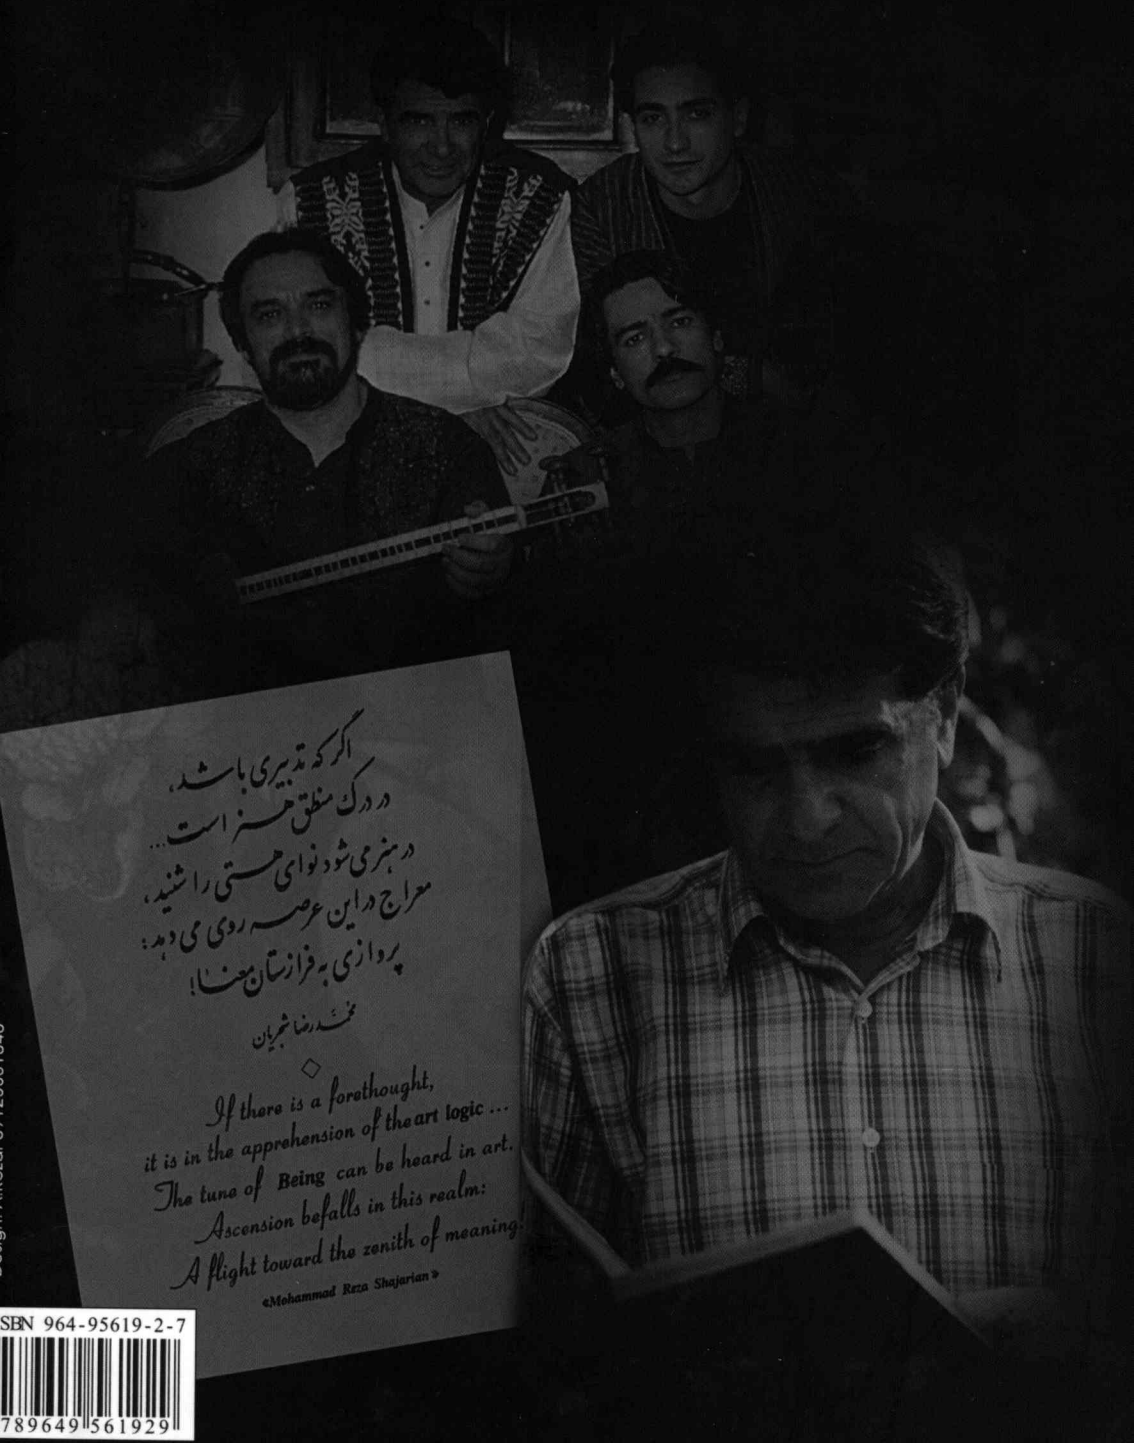 اگر که تدبیری باشد،
در درک منطق هنر است...
در هنر می شود نوای هستی را شنید،
معراج در این عرصه روی می دهد:
پروازی به فرازستان معنا!
محمدرضا شجریان
If there is a forethought,
it is in the apprehension of the art logic ...
The tune of Being can be heard in art.
Ascension befalls in this realm:
A flight toward the zenith of meaning.
«Mohammad Reza Shajarian»
SBN 964-95619-2-7
789649 561929